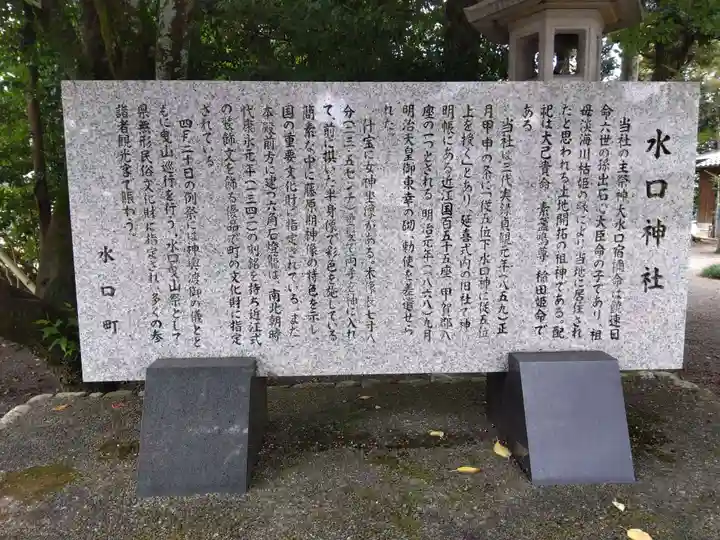 水口神社
当社の主祭神 大水口宿禰命は饒速日
命六世の孫出石心大臣命の子であり 祖
母淡海川枯姫の縁により当地に居住され
たと思われる土地開拓の祖神である 配
祀は大己貴命 素盞嗚尊 稲田姫命で
ある
当社は三代実録貞観元年(八五九)正
月甲申の条に「従五位下水口神に従五位
上を授く」とあり延喜式内の旧社で神
明帳にある近江国百五十五座 甲賀郡八
座の一つとされる 明治元年(一八六八)九月
明治天皇御東幸の砌 勅使を差遣せら
れた
什宝に女神坐像がある 木像長七寸八
分(二三・五センチ)
て、前に構いた半身像で彩色を施している
簡素な中に藤原期神像の特色を示
国の重要文化財に指定されている また
本殿前方に建つ六角石燈籠は 南北朝時
代康永元年(一三四二)の刻銘を持ち近江式
の装飾文を飾る優品で町の文化財に指定
されている
四月二十日の例祭には神輿渡御の儀とと
もに曳山巡行を行う「水口曳山祭」として
県無形民俗文化財に指定され 多くの参
詣者観光客で賑わう
水口町